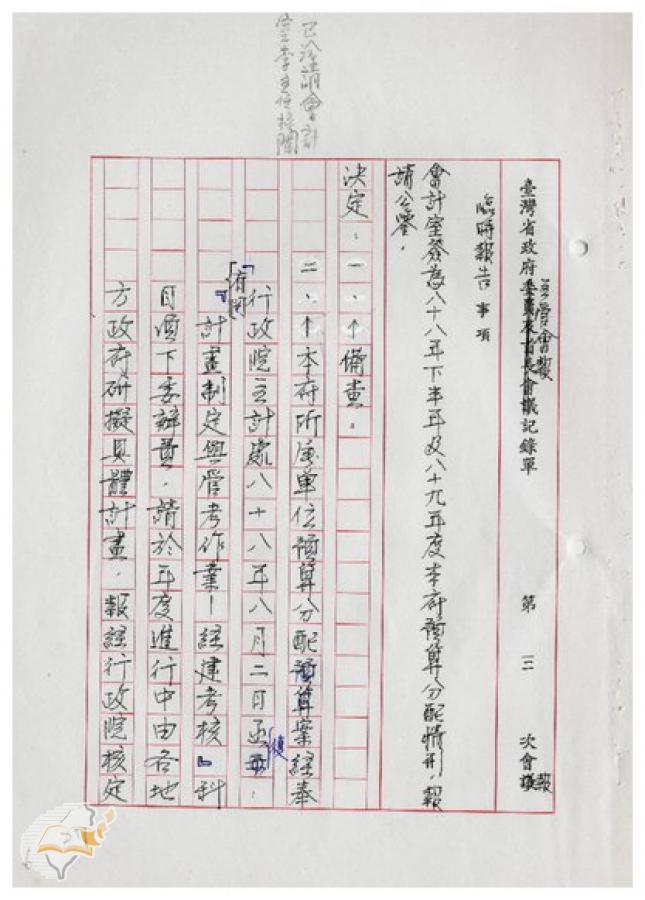 已洽送會計
室李主任核閱
臺灣省政府委員及首長會議記錄單 第三次會議報
業務會報
臨時報告事項
會計室簽為八十八年下半年及八十九年度本府預算分配情形，報
請公鑒。
決定：一、↑備查。
二、↑本府所屬單位預算分配預算案經奉
行政院主計處八十八年八月二日函復：
「有關
『計畫制定與管考作業－經建考核』科
目項下委辦費，請於年度進行中由各地
方政府研擬具體計畫，報經行政院核定